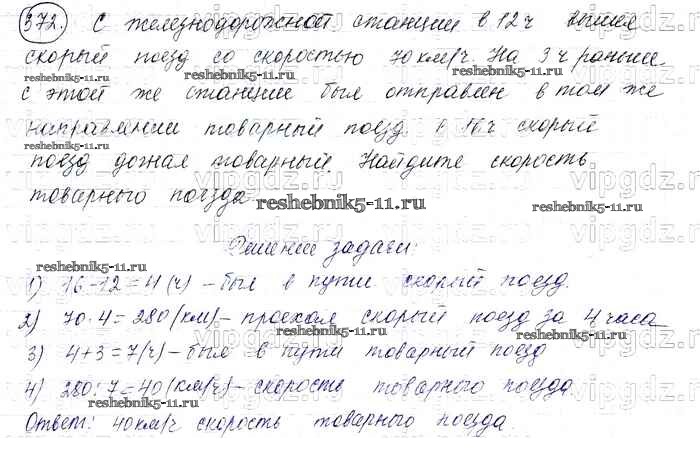 372. С железнодорожной станции в 12 ч вышел
скорый поезд со скоростью 70 км/ч. На 3 ч раньше
с этой же станции был отправлен в том же
направлении товарный поезд. В 16 ч скорый
поезд догнал товарный. Найдите скорость
товарного поезда.
Решение задачи:
1) 16-12=4 (ч) – был в пути скорый поезд.
2) 70·4=280 (км) – проехал скорый поезд за 4 часа
3) 4+3=7 (ч) – был в пути товарный поезд
4) 280:7=40 (км/ч) – скорость товарного поезда
Ответ: 40 км/ч скорость товарного поезда.
reshebnik5-11.ru
reshebnik5-11.ru
reshebnik5-11.ru
reshebnik5-11.ru
reshebnik5-11.ru
reshebnik5-11.ru
reshebnik5-11.ru
reshebnik5-11.ru
vipgdz.ru